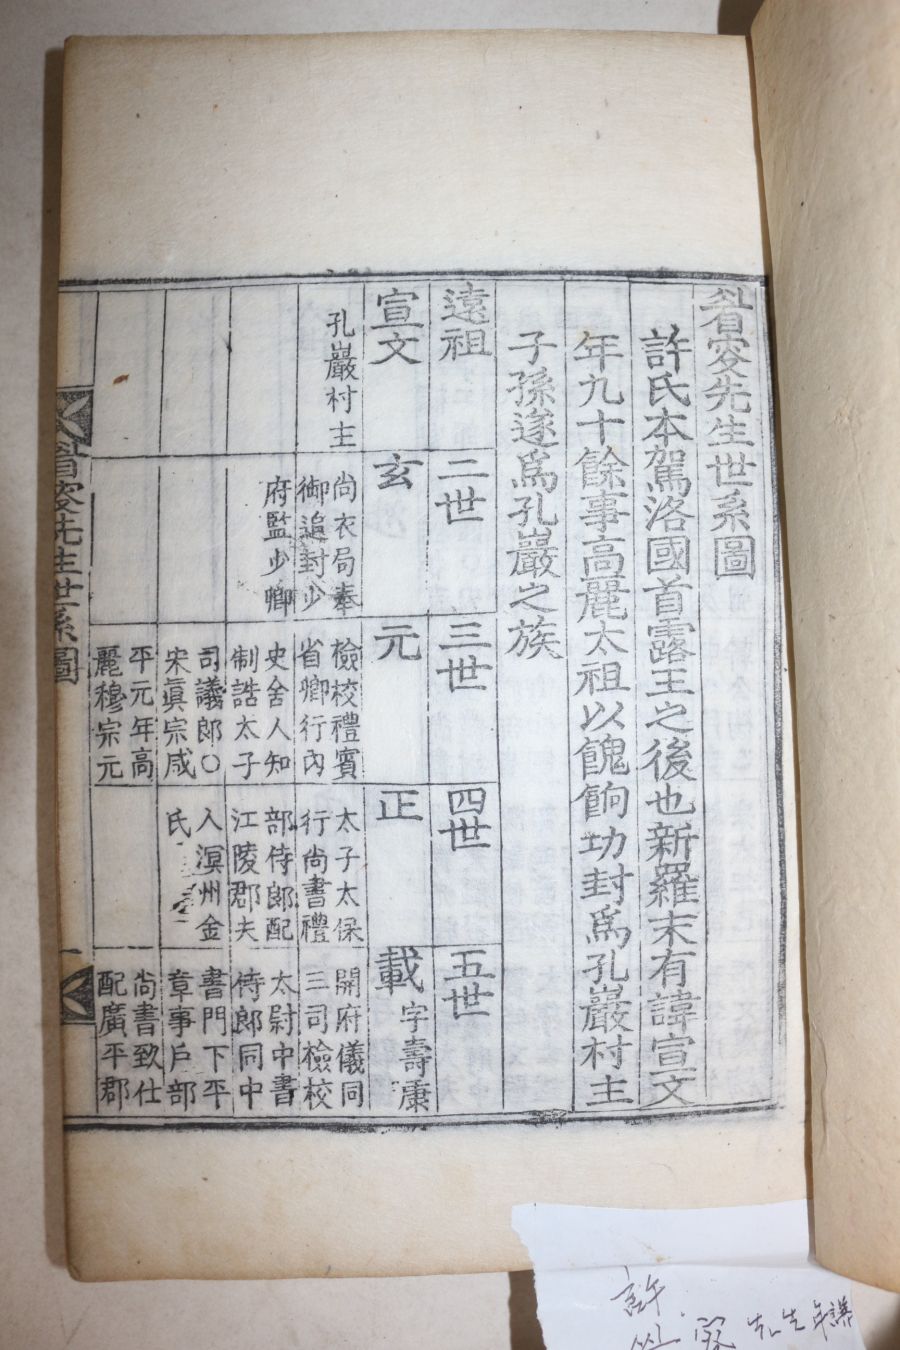 先生世系圖
許氏本駕洛國首露王之後也新羅末有諱宣文
年九十餘事高麗太祖以餽餉功封爲孔巖村主
子孫遂爲孔巖之族
遠祖
宣文
孔巖村主
二世
玄
尙衣局奉
御追封少
府監少卿
三世
元
檢校禮賓
省卿行內
史舍人知
制誥太子
司議郞○
宋眞宗咸
平元年高
麗穆宗元
四世
正
太子太保
行尙書禮
部侍郞配
江陵郡夫
人溟州金
氏
五世
載 字壽康
開府儀同
三司檢校
太尉中書
侍郞同中
書門下平
章事戶部
尙書致仕
配廣平郡
先生世系圖
一
許
先生年譜